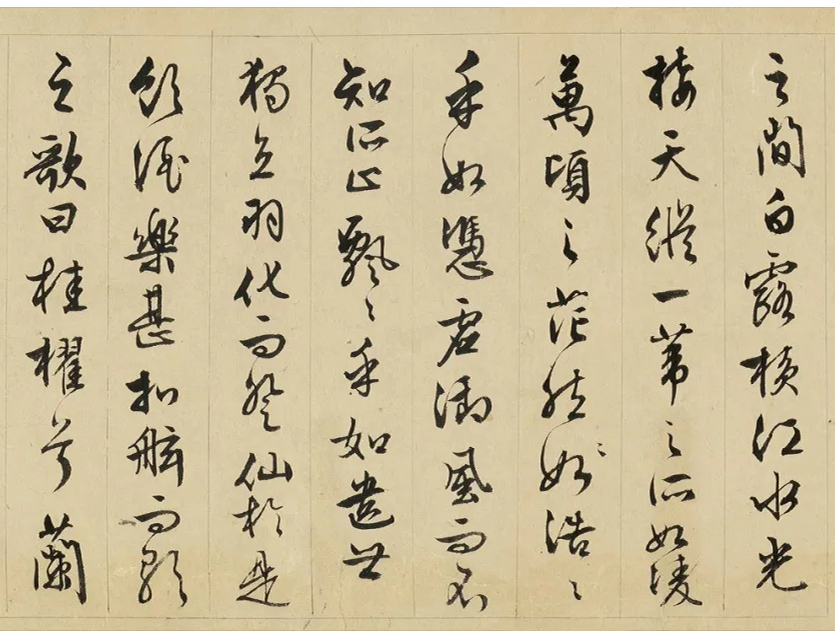 之間白露横江水光
接天縱一葦之所如陵
萬頃之茫然浩〻
乎如憑虛御風而不
知所止飄〻乎如遺世
獨立羽化而登仙於是
飲酒樂甚扣舷而歌
之歌曰桂櫂兮蘭